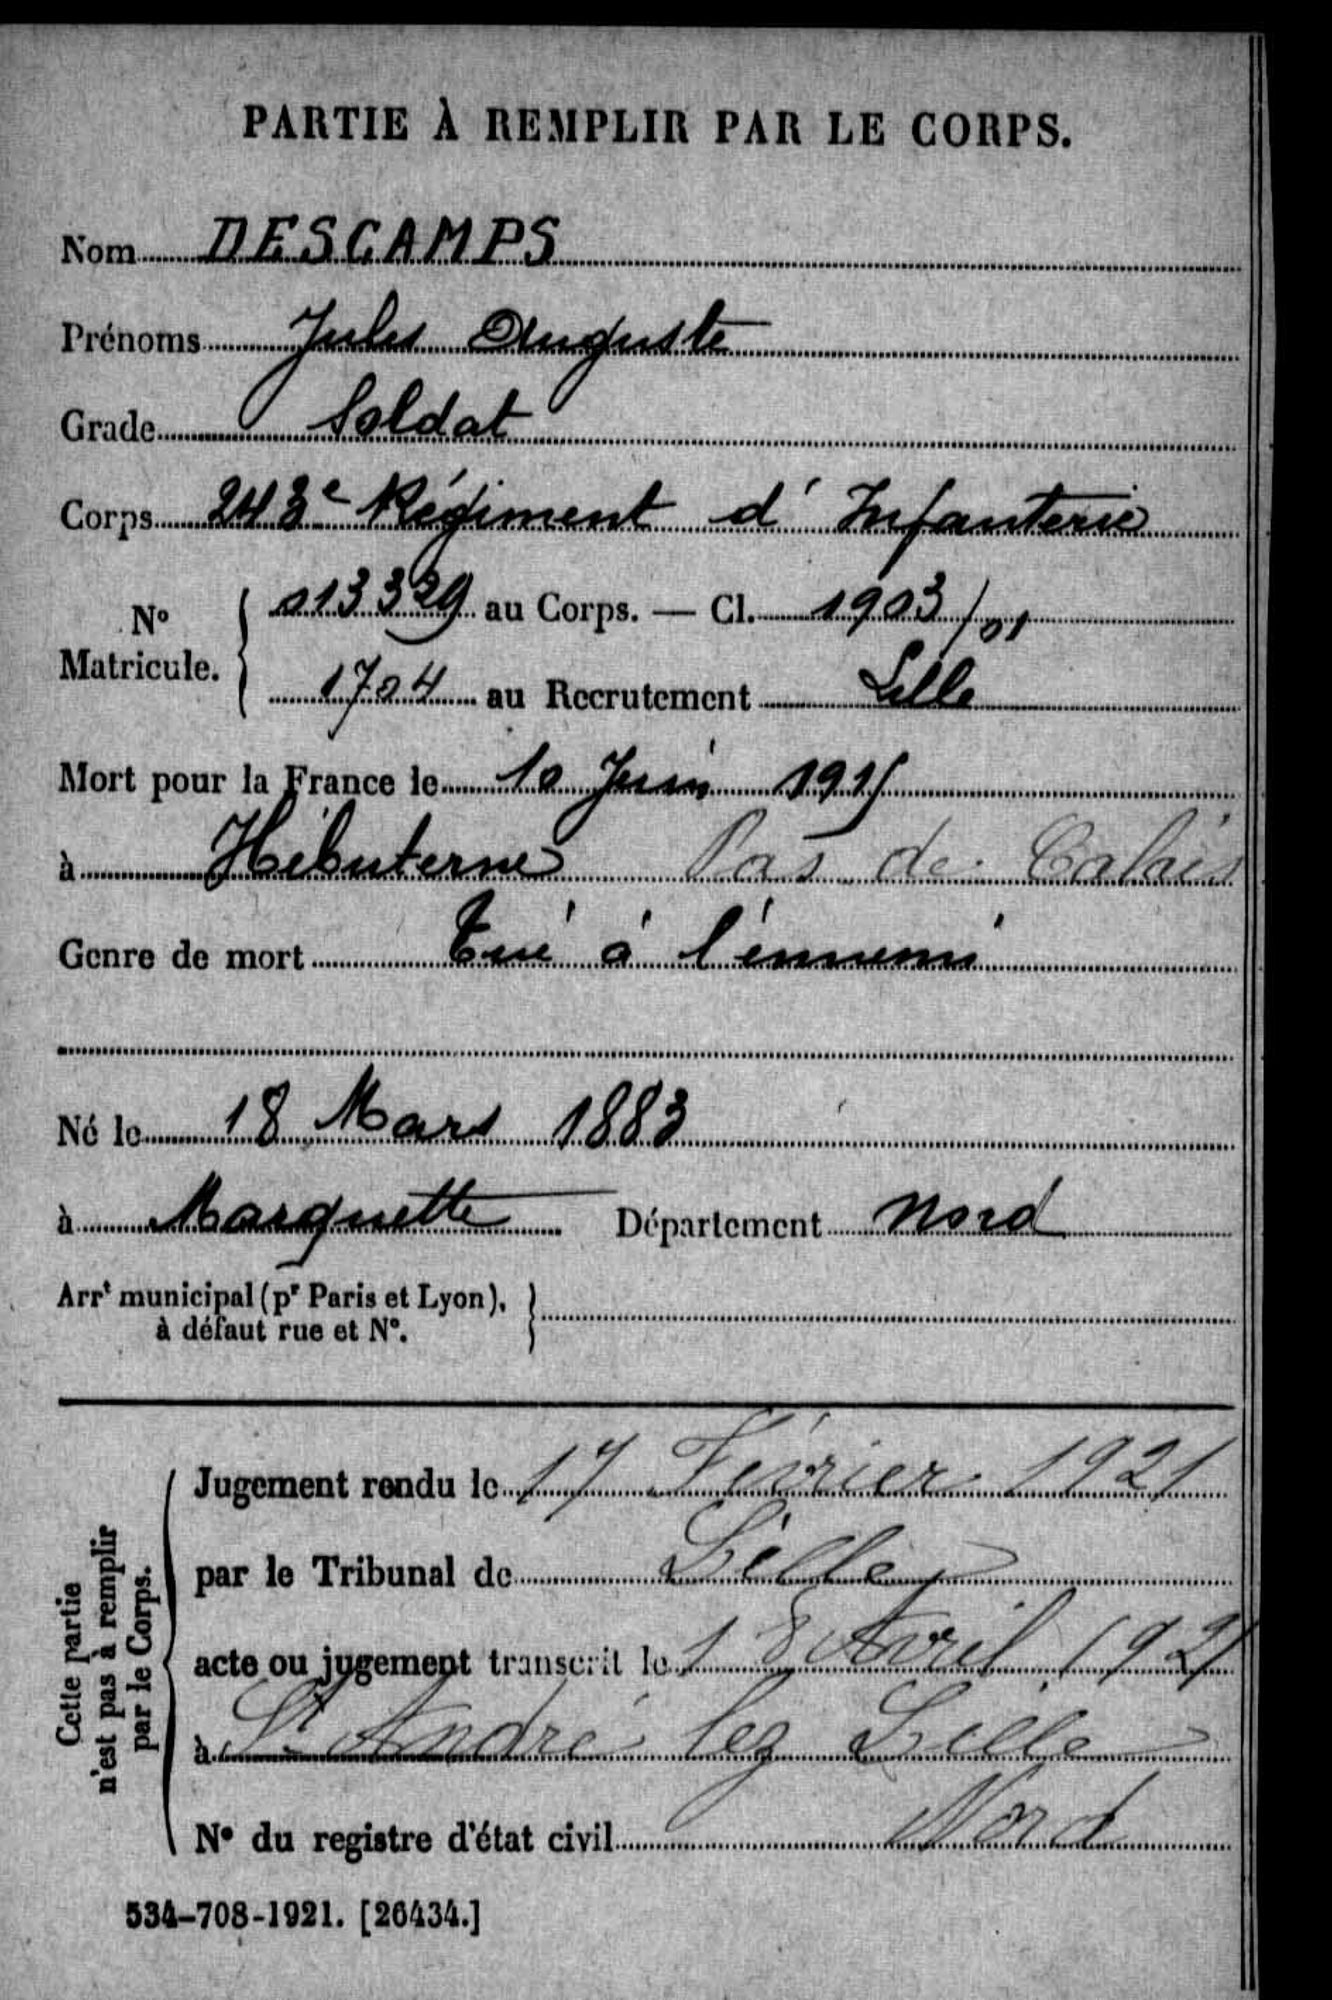 PARTIE À REMPLIR PAR LE CORPS.
Nom DESCAMPS
Prénoms Jules Auguste
Grade Soldat
Corps 243e Régiment d'Infanterie
No Matricule. { 013329 au Corps. — Cl. 1903/01
1704 au Recrutement Lille
Mort pour la France le 10 Juin 1915
à Hébuterne Pas de Calais
Genre de mort Tué à l'énnemi
Né le 18 Mars 1883
à Marquette Département Nord
Arrt municipal (pr Paris et Lyon), }
à défaut rue et N°.
Cette partie
n'est pas à remplir
par le Corps.
Jugement rendu le 17 Février 1921
par le Tribunal de Lille
acte ou jugement transcrit le 18 Avril 1921
à St André lez Lille
N° du registre d'état civil Nord
534-708-1921. [26434.]